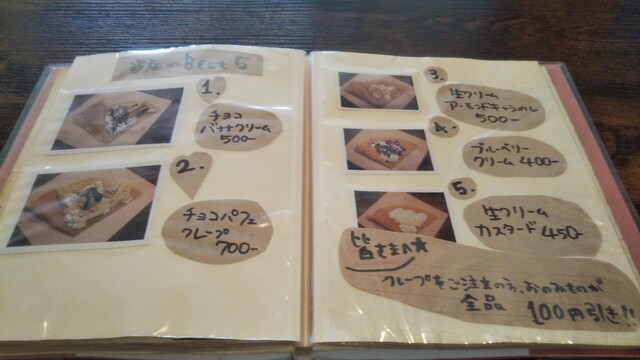 当店のBest 5
1.
チョコ
バナナクリーム
500-
2.
チョコパフェ
クレープ
700-
3.
生クリーム
アーモンドキャラメル
500-
4.
ブルーベリー
クリーム 400-
5.
生クリーム
カスタード 450-
皆さまへ★
クレープをご注文の方、おのみものが
全品 100円引き!!